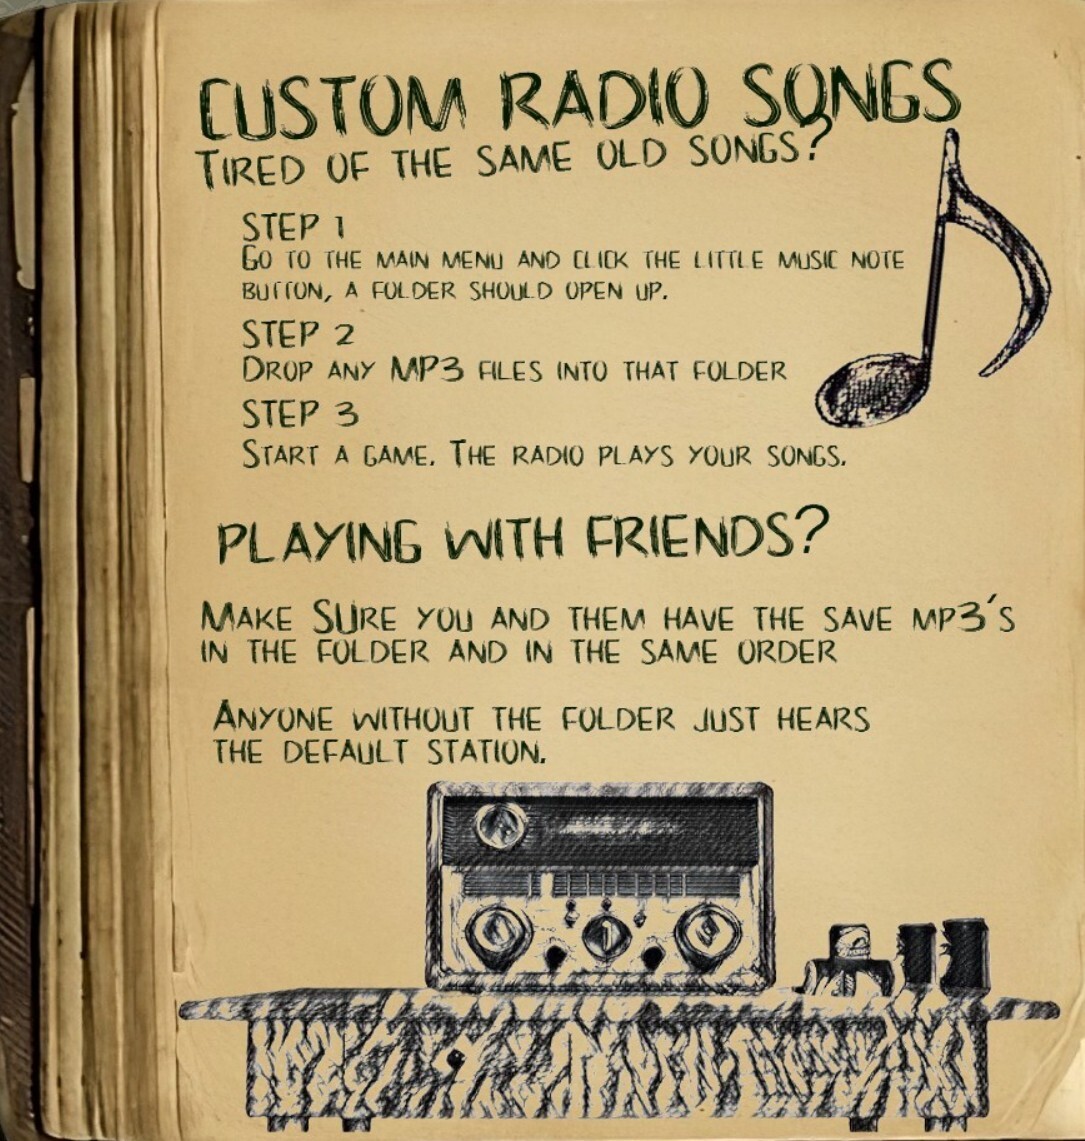 CUSTOM RADIO SONGS
TIRED OF THE SAME OLD SONGS?
STEP 1
GO TO THE MAIN MENU AND CLICK THE LITTLE MUSIC NOTE
BUTTON, A FOLDER SHOULD OPEN UP.
STEP 2
DROP ANY MP3 FILES INTO THAT FOLDER
STEP 3
START A GAME. THE RADIO PLAYS YOUR SONGS.
PLAYING WITH FRIENDS?
MAKE SURE YOU AND THEM HAVE THE SAVE MP3'S
IN THE FOLDER AND IN THE SAME ORDER
ANYONE WITHOUT THE FOLDER JUST HEARS
THE DEFAULT STATION.